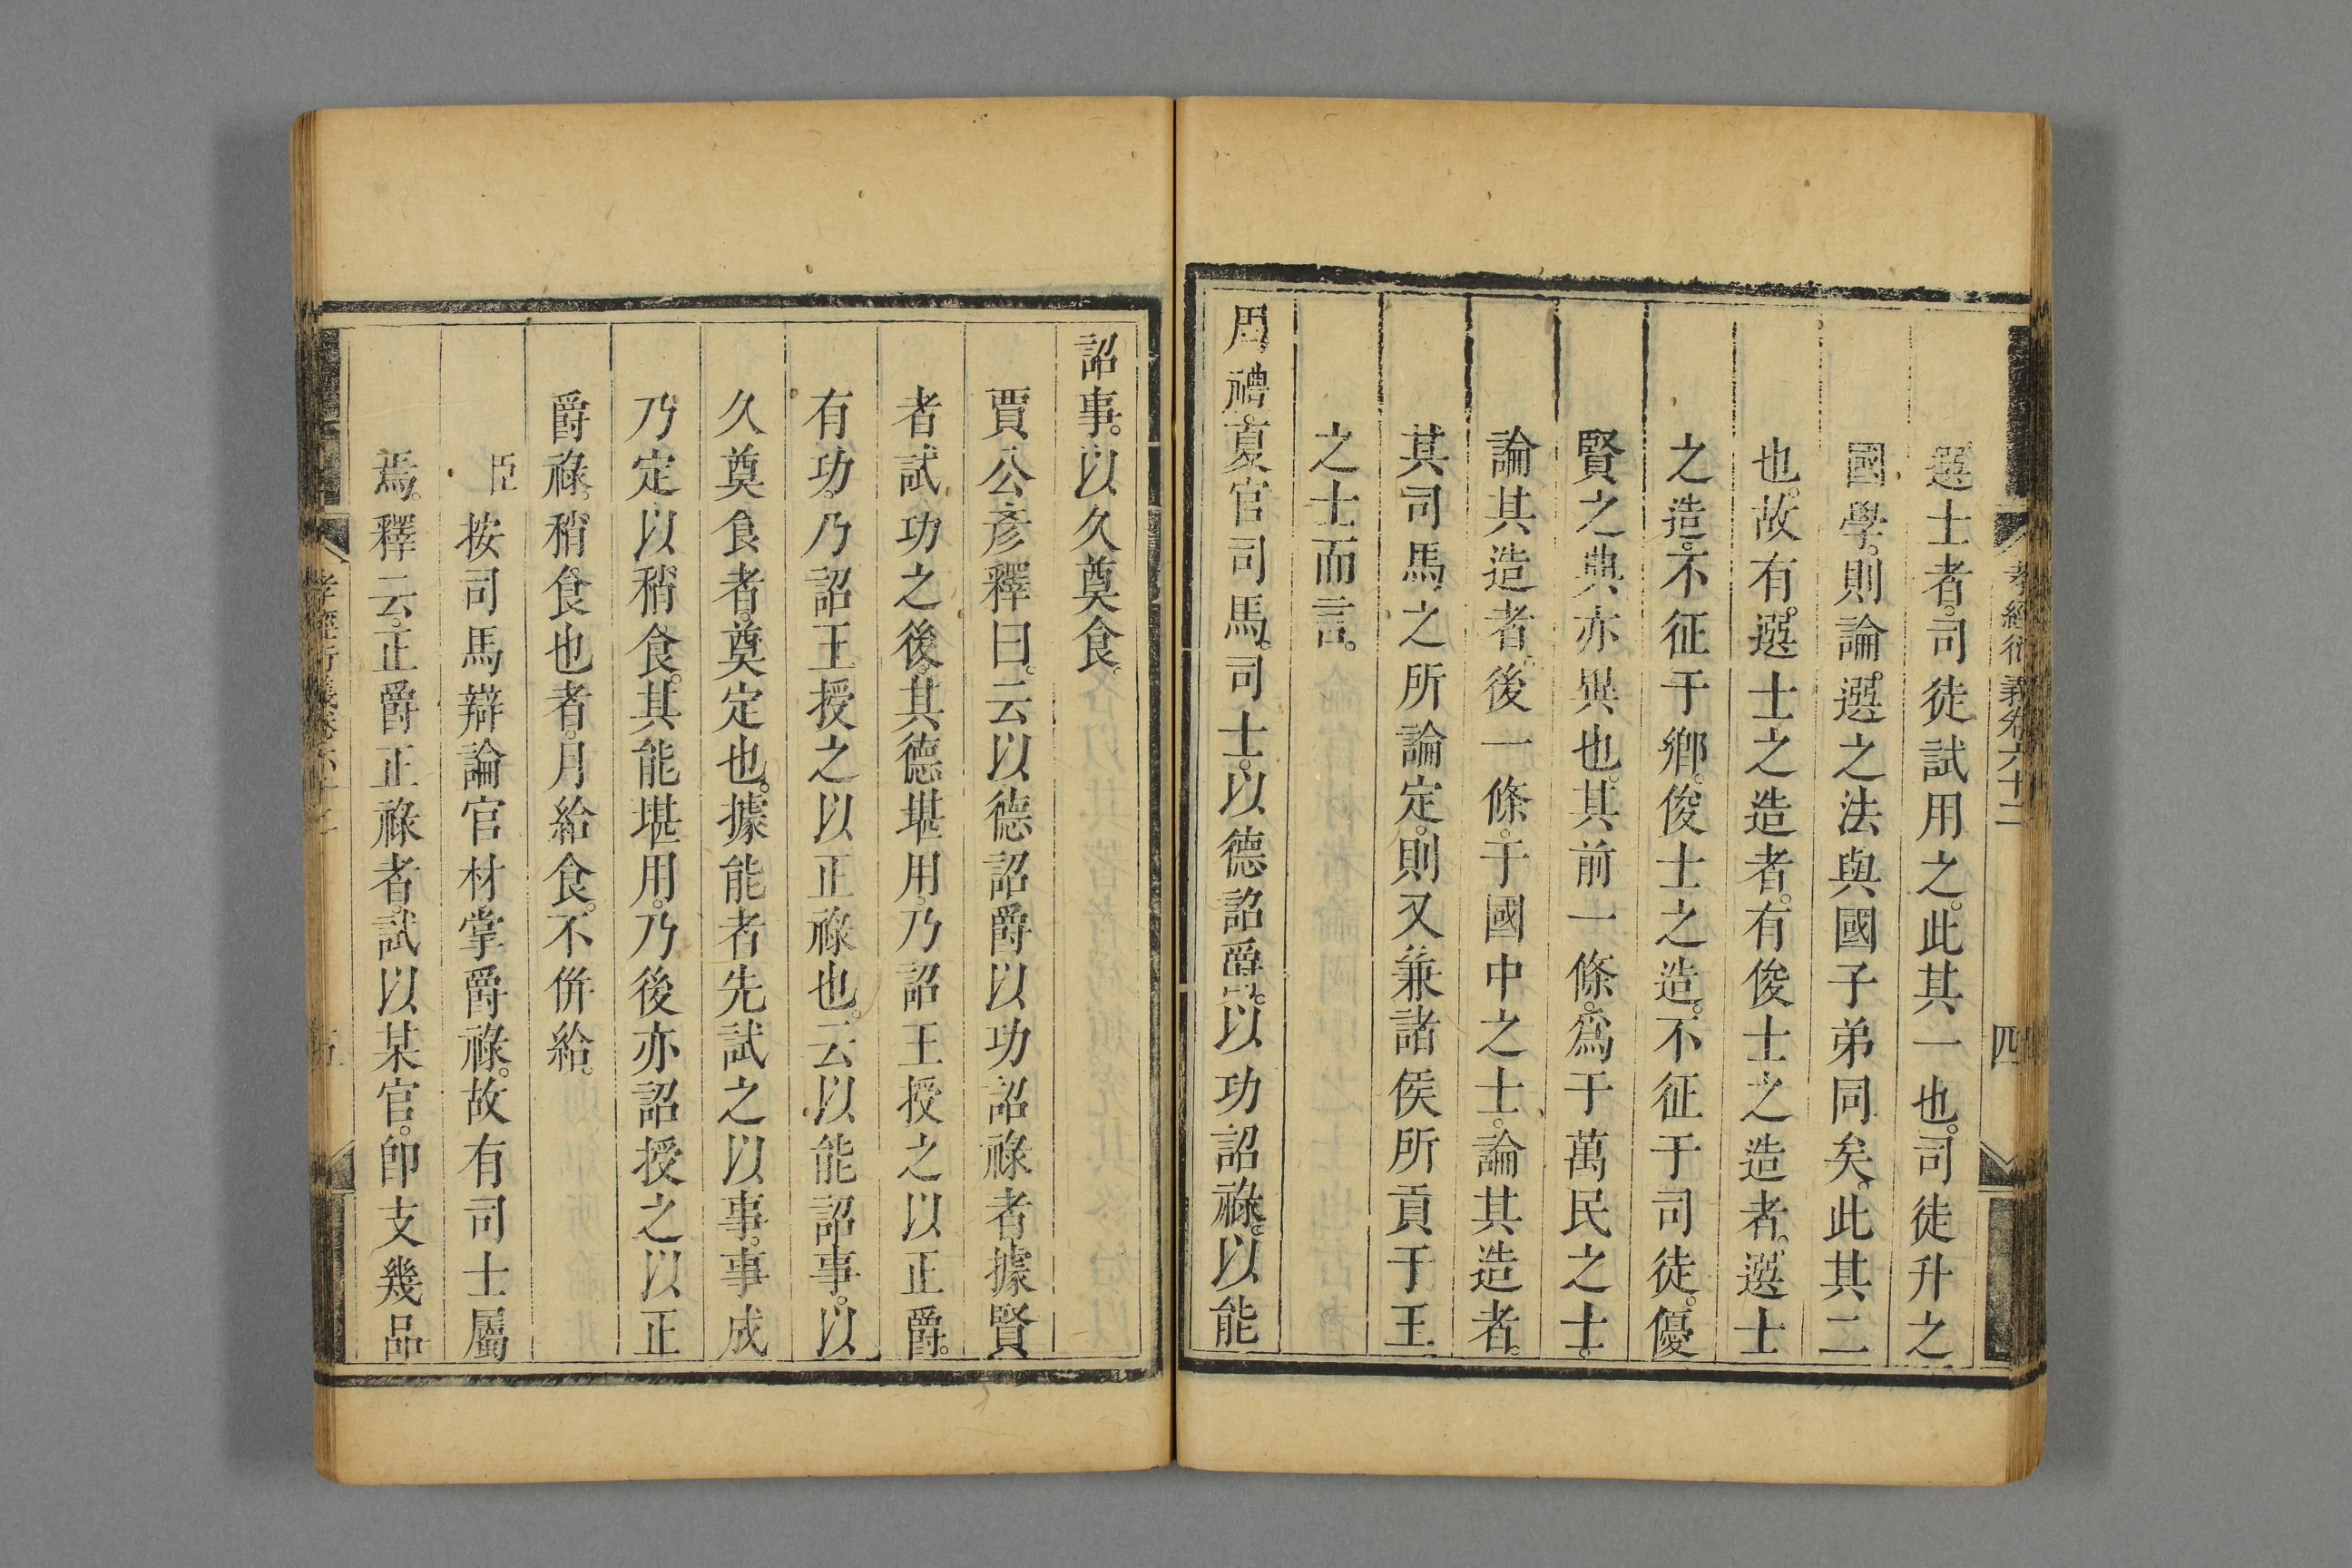 孝經衍義卷六十二 四
選士者。司徒試用之。此其一也。司徒升之
國學。則論選之法與國子弟同矣。此其二
也。故有選士之造者。有俊士之造者。選士
之造。不征于鄉。俊士之造。不征于司徒。優
賢之典亦異也。其前一條。爲于萬民之士。
論其造者。後一條。于國中之士。論其造者。
其司馬之所論定。則又兼諸侯所貢于王
之士而言。
周禮。夏官司馬。司士。以德詔爵。以功詔祿。以能
詔事。以久奠食。
賈公彥釋曰。云以德詔爵以功詔祿者據賢
者試功之後。其德堪用。乃詔王授之以正爵。
有功。乃詔王授之以正祿也。云以能詔事。以
久奠食者。奠定也。據能者先試之以事。事成
乃定以稍食。其能堪用。乃後亦詔授之以正
爵祿。稍食也者。月給食。不併給。
臣按司馬辯論官材掌爵祿。故有司士屬
焉。釋云。正爵正祿者。試以某官。卽支幾品
孝經衍義卷六十二 五